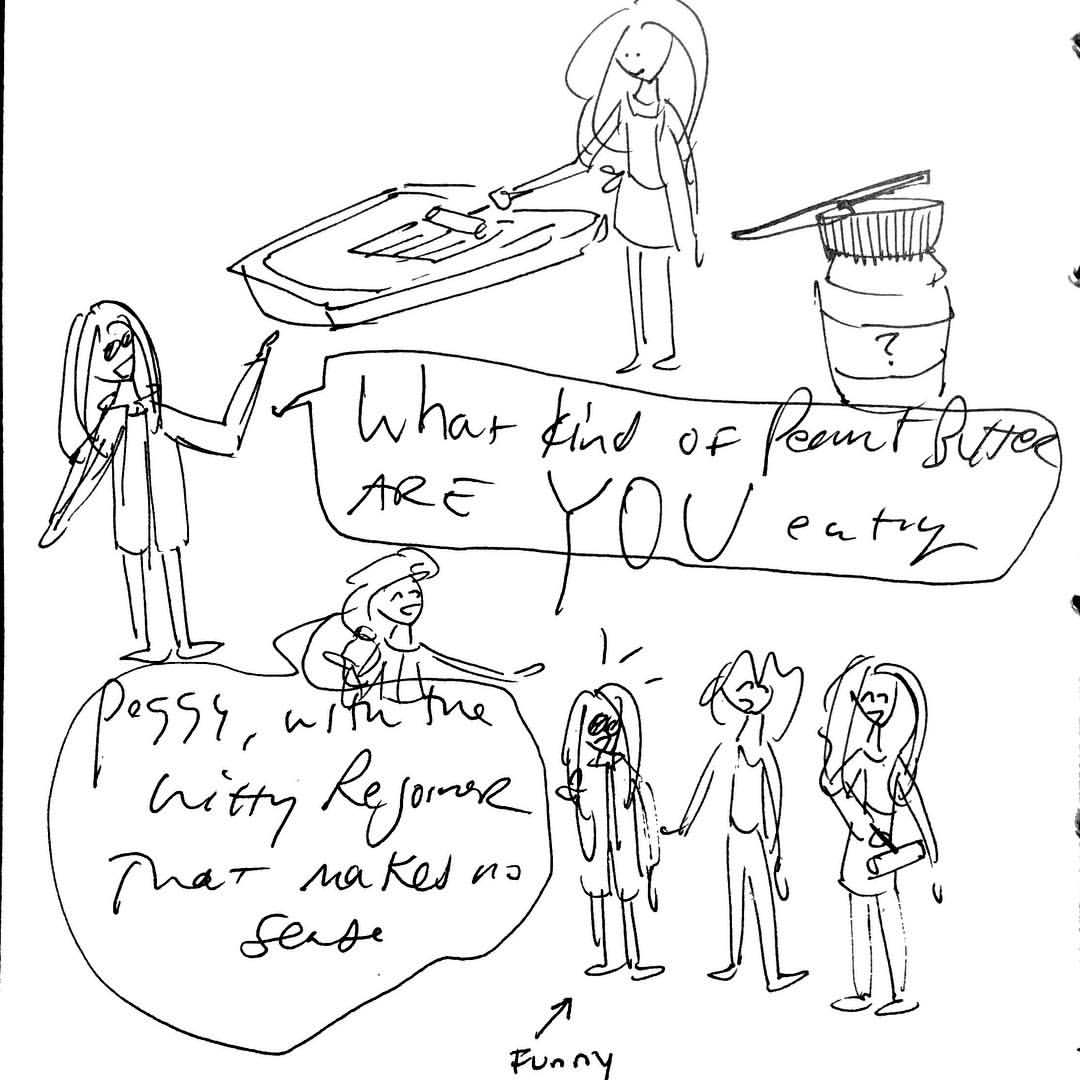 ?
What kind of Peanut Butter
ARE YOU eating
Peggy, with the
witty Rejoiner
That makes no
sense
Funny